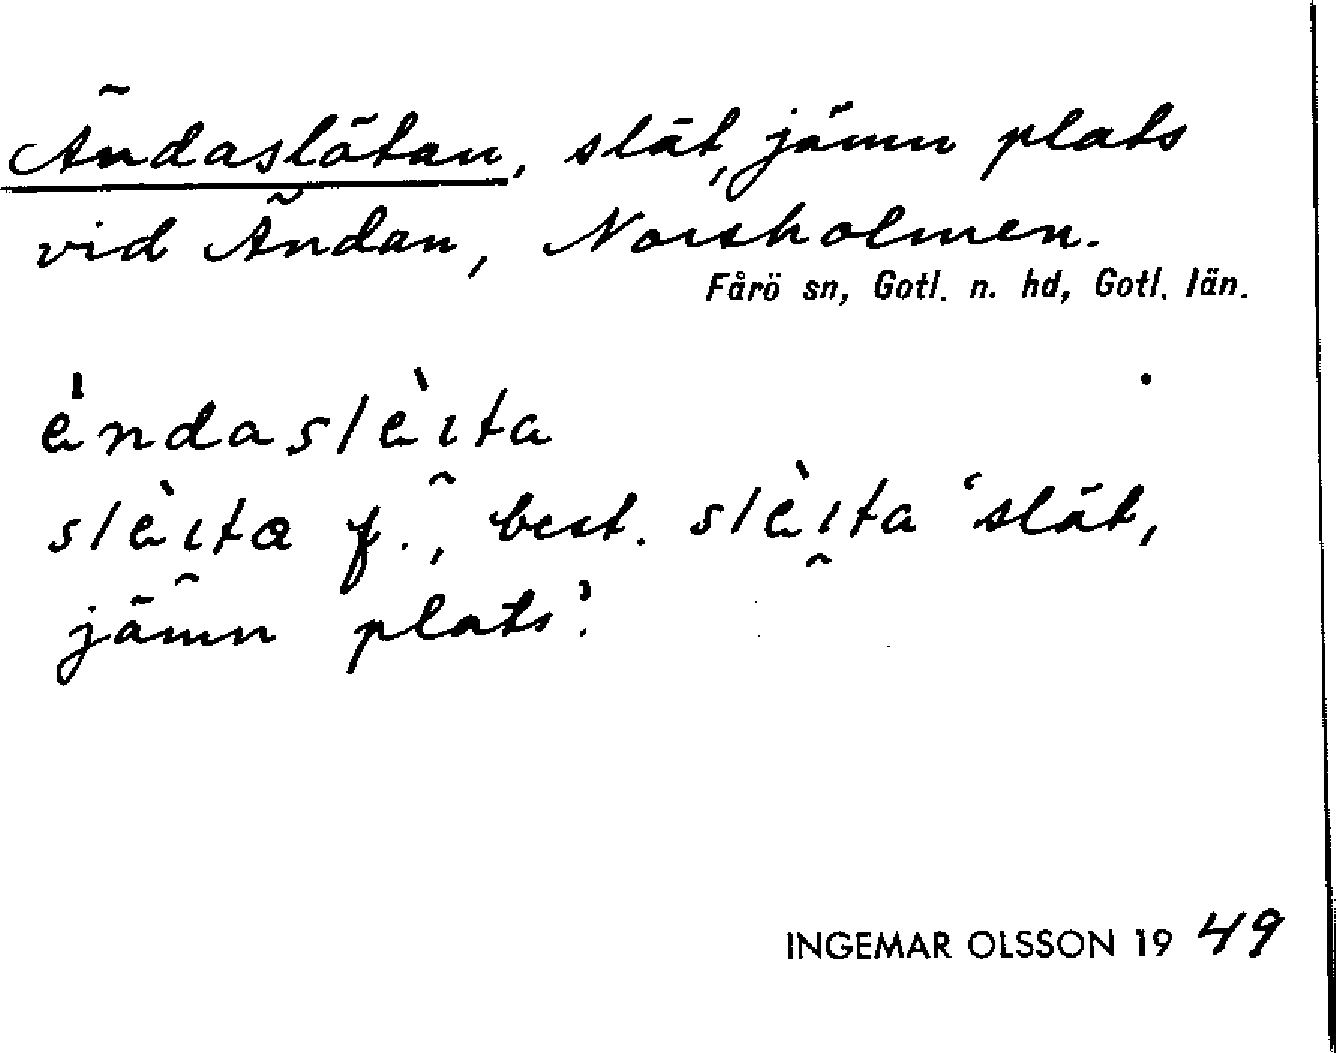 Ändaslätan, slät, jämn plats
vid Ändan, Norsholmen.
Fårö sn, Gotl. n. hd, Gotl. län.
èndaslèıta
slèıta f., best. slèıta ‘slät,
jämn plats’.
INGEMAR OLSSON 19 49